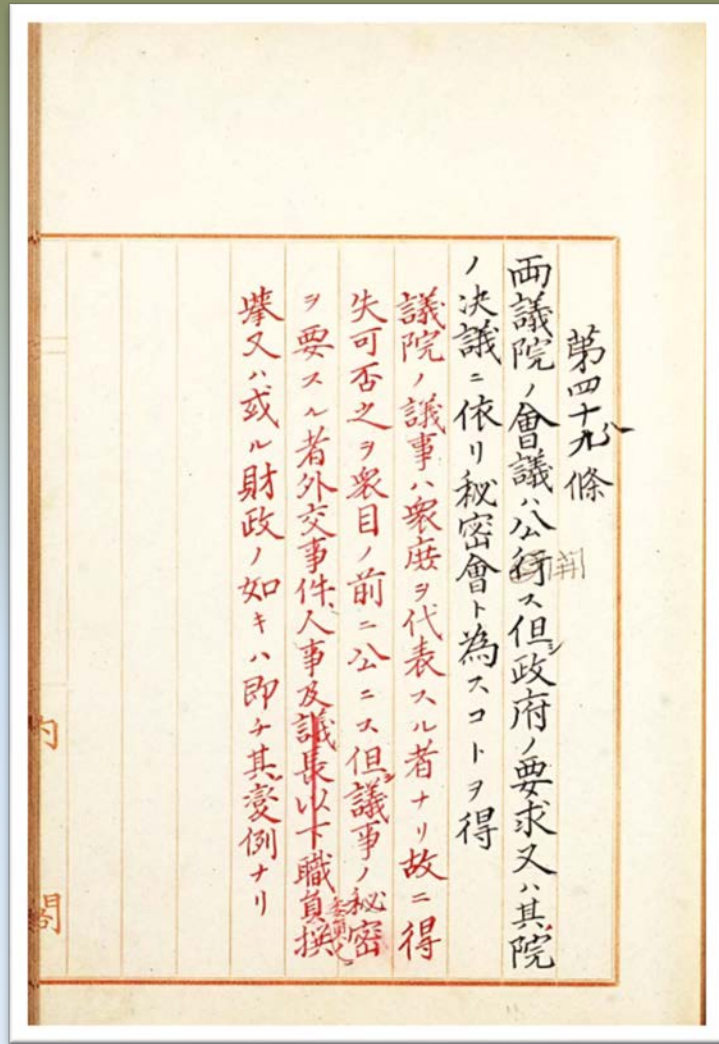 第四十九八條
両議院ノ會議ハ公行開ス但シ政府ノ要求又ハ其院
ノ決議ニ依リ秘密會ト為スコトヲ得
議院ノ議事ハ衆庶ヲ代表スル者ナリ故ニ得
失可否之ヲ衆目ノ前ニ公ニス但シ議事ノ秘密
ヲ要スル者外交事件、人事及議長以下職員委員ノ撰
擧又ハ或ル財政ノ如キハ即チ其変例ナリ
内閣